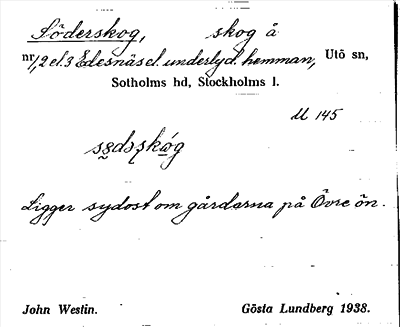 Söderskog, skog å
nr 1, 2 el. 3 Edesnäs el. underlyd. hemman, Utö sn,
Sotholms hd, Stockholms l.
M 145
Ligger sydost om gårdarna på Övre ön.
John Westin. Gösta Lundberg 1938.